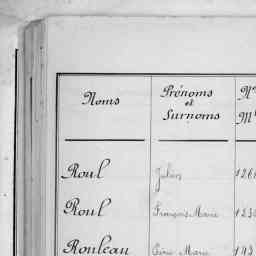 Noms Prénoms Nos
et
Surnoms Mle
Roul Julien 1261
Roul François Marie 1230
Rouleau Marie 142